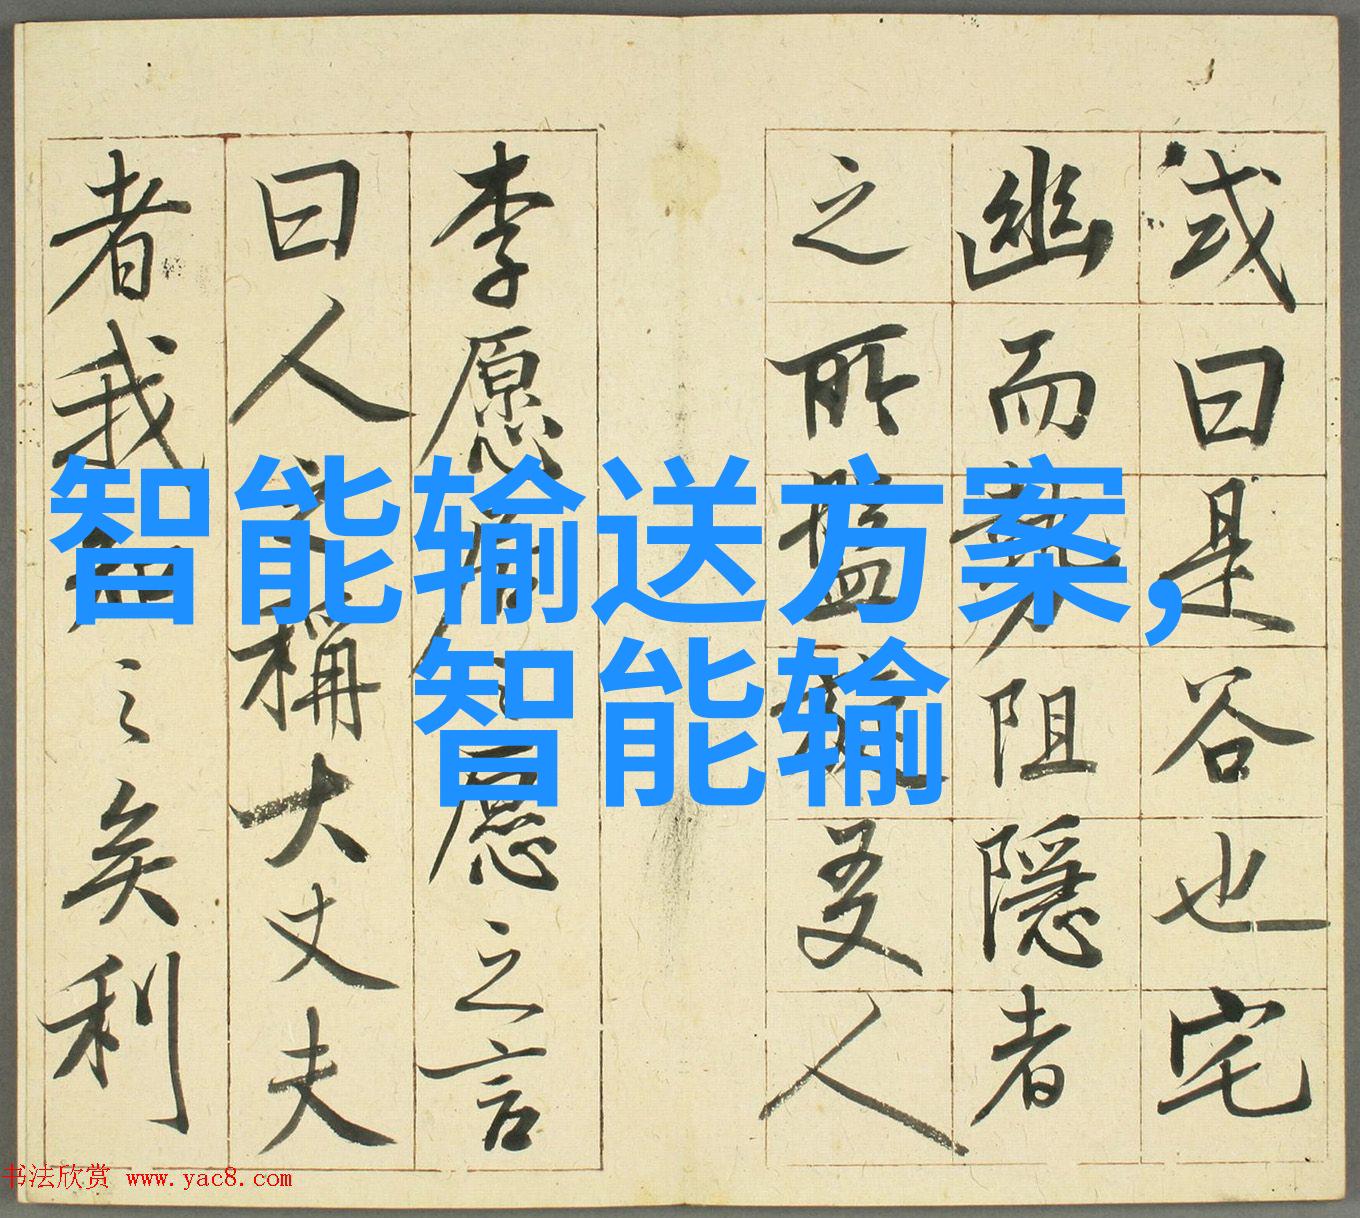 或曰是谷也宅
幽而勢阻隱者
之所盤旋友人
李愿居之愿之言
曰人之稱大丈夫
者我知之矣利
智能输送方案,
智能输
书法欣赏 www.yac8.com